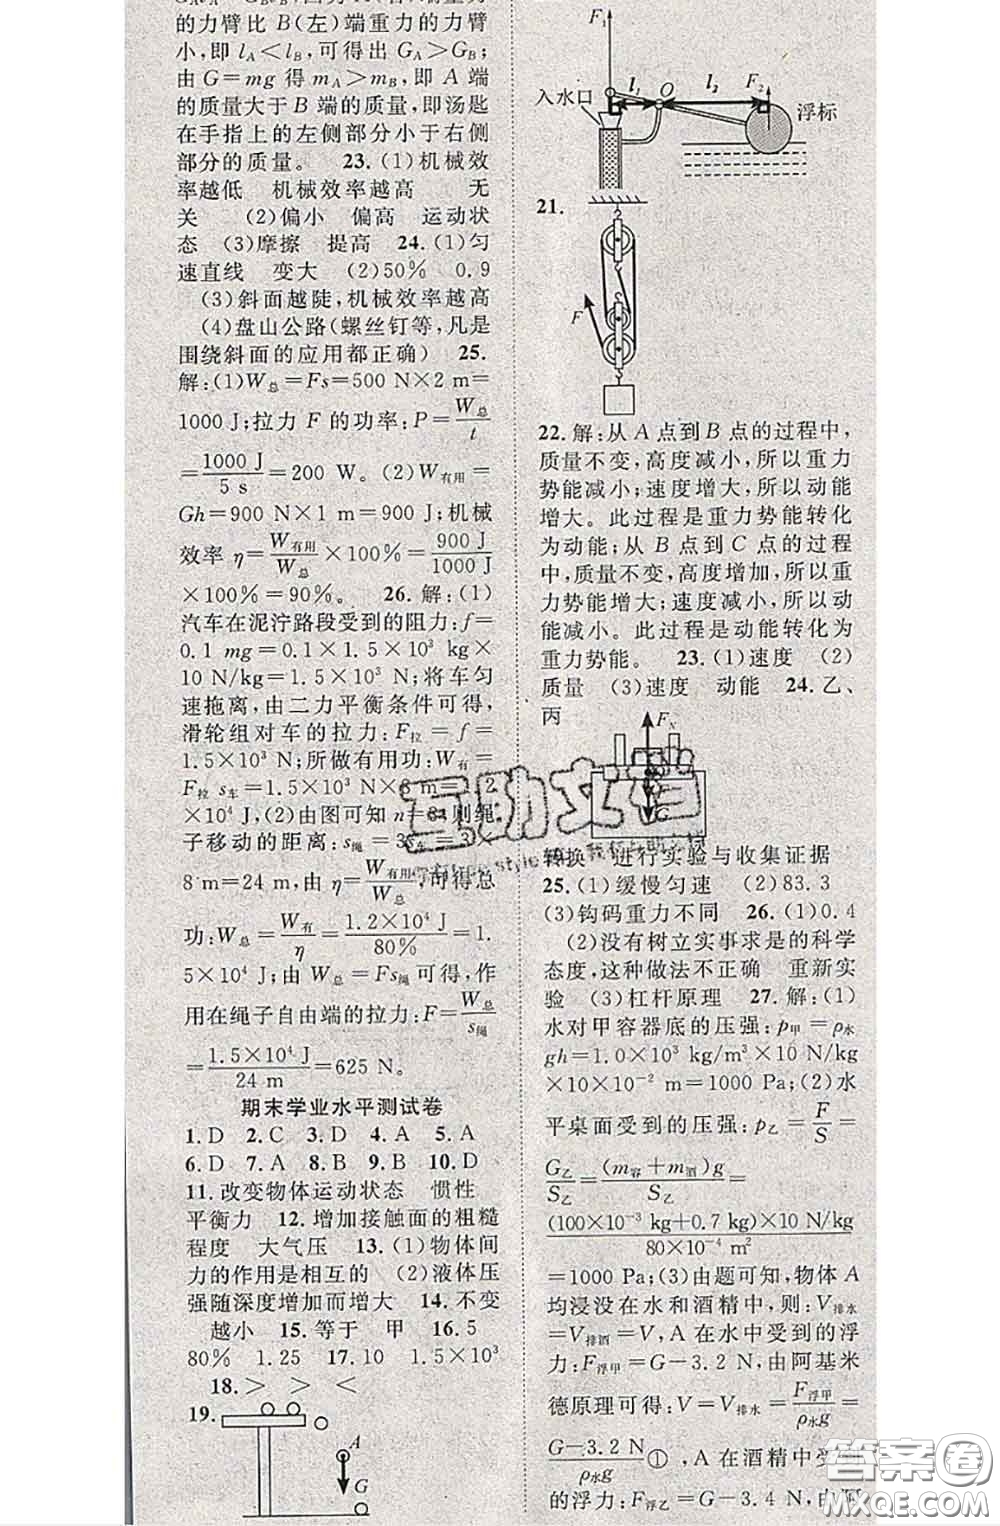 的力臂比 B(左)端重力的力臂
小,即 l_A<l_B,可得出 G_A>G_B;
由 G=mg 得 m_A>m_B,即 A 端
的质量大于 B 端的质量,即汤匙
在手指上的左侧部分小于右侧
部分的质量。 23. (1)机械效
率越低 机械效率越高 无
关 (2)偏小 偏高 运动状
态 (3)摩擦 提高 24. (1)匀
速直线 变大 (2)50% 0.9
(3)斜面越陡,机械效率越高
(4)盘山公路(螺丝钉等,凡是
围绕斜面的应用都正确) 25.
解:(1)W总=Fs=500 N×2 m=
1000 J;拉力 F 的功率:P=W总/t
=1000 J/5 s=200 W。(2)W有用=
Gh=900 N×1 m=900 J;机械
效率 η=W有用/W总×100%=900 J/1000 J
×100%=90%。 26. 解:(1)
汽车在泥泞路段受到的阻力:f=
0.1 mg=0.1×1.5×10³ kg×
10 N/kg=1.5×10³ N;将车匀
速拖离,由二力平衡条件可得,
滑轮组对车的拉力:F拉=f=
1.5×10³ N;所做有用功:W有=
F拉 s车=1.5×10³ N×8 m=1.2
×10⁴ J,(2)由图可知 n=3,则绳
子移动的距离:s绳=3s车=3×
8 m=24 m,由 η=W有用/W总,可得总
功:W总=W有/η=1.2×10⁴ J/80%=1.
5×10⁴ J;由 W总=Fs绳可得,作
用在绳子自由端的拉力:F=W总/s绳
=1.5×10⁴ J/24 m=625 N。
期末学业水平测试卷
1. D 2. C 3. D 4. A 5. A
6. D 7. A 8. B 9. B 10. D
11. 改变物体运动状态 惯性
平衡力 12. 增加接触面的粗糙
程度 大气压 13. (1)物体间
力的作用是相互的 (2)液体压
强随深度增加而增大 14. 不变
越小 15. 等于 甲 16. 5
80% 1.25 17. 10 1.5×10³
18. > > <
19.
A
G
F₁
l₁ O l₂ F₂
入水口
浮标
21.
F
22. 解:从 A 点到 B 点的过程中,
质量不变,高度减小,所以重力
势能减小;速度增大,所以动能
增大。此过程是重力势能转化
为动能;从 B 点到 C 点的过程
中,质量不变,高度增加,所以重
力势能增大;速度减小,所以动
能减小。此过程是动能转化为
重力势能。 23. (1)速度 (2)
质量 (3)速度 动能 24. 乙、
丙
F_N
G
转换 进行实验与收集证据
25. (1)缓慢匀速 (2)83.3
(3)钩码重力不同 26. (1)0.4
(2)没有树立实事求是的科学
态度,这种做法不正确 重新实
验 (3)杠杆原理 27. 解:(1)
水对甲容器底的压强:p甲=ρ水
gh=1.0×10³ kg/m³×10 N/kg
×10×10⁻² m=1000 Pa;(2)水
平桌面受到的压强:p乙=F/S=
G乙/S乙=(m容+m酒)g/S乙=
(100×10⁻³ kg+0.7 kg)×10 N/kg/80×10⁻⁴ m²
=1000 Pa;(3)由题可知,物体 A
均浸没在水和酒精中,则:V排水
=V排酒=V,A 在水中受到的浮
力:F浮甲=G-3.2 N,由阿基米
德原理可得:V=V排水=F浮甲/ρ水g=
G-3.2 N/ρ水g①,A 在酒精中受到
的浮力:F浮乙=G-3.4 N,由阿
互助文档
答案圈
MXQE.COM